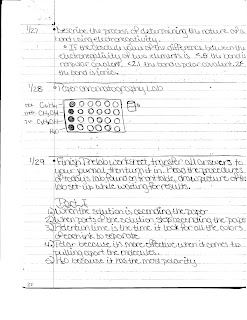 1/27 • Describe the process of determining the nature of a
bond using electronegativity.
• If the absolute value of the difference between the
electronegativity of two elements is <.5 the bond is
nonpolar covalent. <2.1 the bond is polar covalent. If
the bond is ionic.
1/28 • Paper Chromatography Lab
H₂O
1/29 • Finish Prelab worksheet, transfer all answers to
your journal, then turn it in. Read the procedures
of today's lab found on front table, draw picture of the
lab set-up while waiting for results.
Part I
1) When the solution is ascending the paper
2) When parts of the solution stop ascending the paper
3) Retention time is the time it took for all the colors
of each ink to separate.
4) Polar because it's more effective when it comes to
pulling apart the molecules.
5) H₂O because it has the most polarity